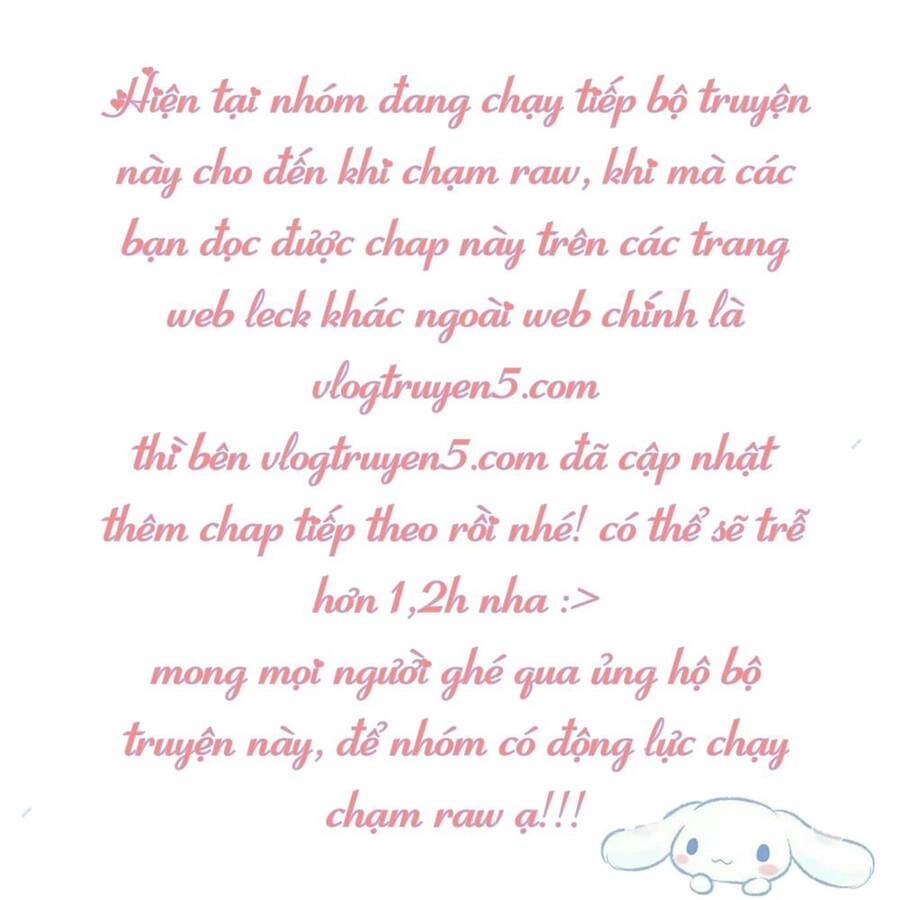 Hiện tại nhóm đang chạy tiếp bộ truyện
này cho đến khi chạm raw, khi mà các
bạn đọc được chap này trên các trang
web leck khác ngoài web chính là
vlogtruyen5.com
thì bên vlogtruyen5.com đã cập nhật
thêm chap tiếp theo rồi nhé! có thể sẽ trễ
hơn 1,2h nha :>
mong mọi người ghé qua ủng hộ bộ
truyện này, để nhóm có động lực chạy
chạm raw ạ!!!